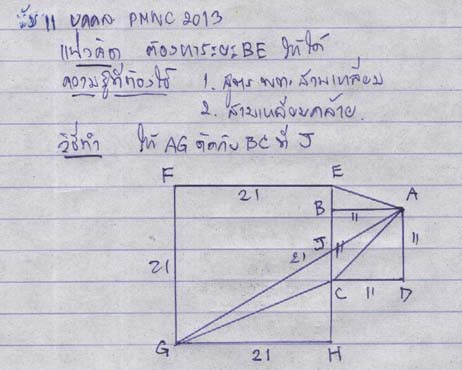 ข้อ 11 บุคคล PMWC 2013
แนวคิด ต้องหาระยะ BE ให้ได้
ความรู้ที่ต้องใช้ 1. สูตร พท. สามเหลี่ยม
2. สามเหลี่ยมคล้าย.
วิธีทำ ให้ AG ตัดกับ BC ที่ J
F E
21
B A
11
J 11 11
21 21
C D
11
G H
21